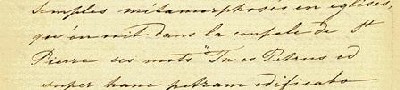 temples métamorphosés en églises,
qu'on mit dans la coupole de St
Pierre ces mots "Tu es Petrus et
super hanc petram edificabo